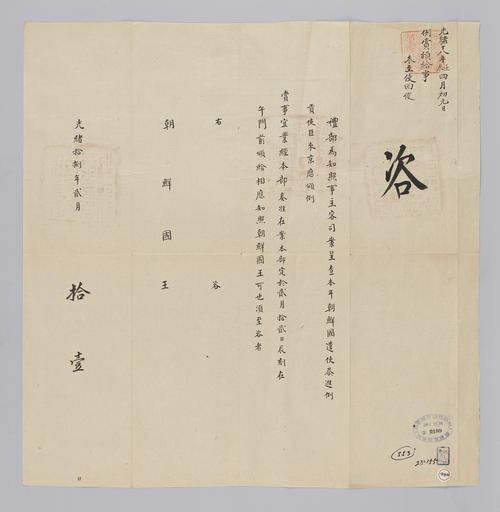 光緒十八年壬辰四月初九日
例賞頒給事
冬至使回便
咨
禮部為知照事主客司案呈查本年朝鮮國遣使恭進例
貢使臣來京應頒例
賞事宜業經本部奏准在案本部定於貳月拾貳日辰刻在
午門前頒給相應知照朝鮮國王可也須至咨者
右 咨
朝鮮國王
光緒拾捌年貳月 拾壹 日
553